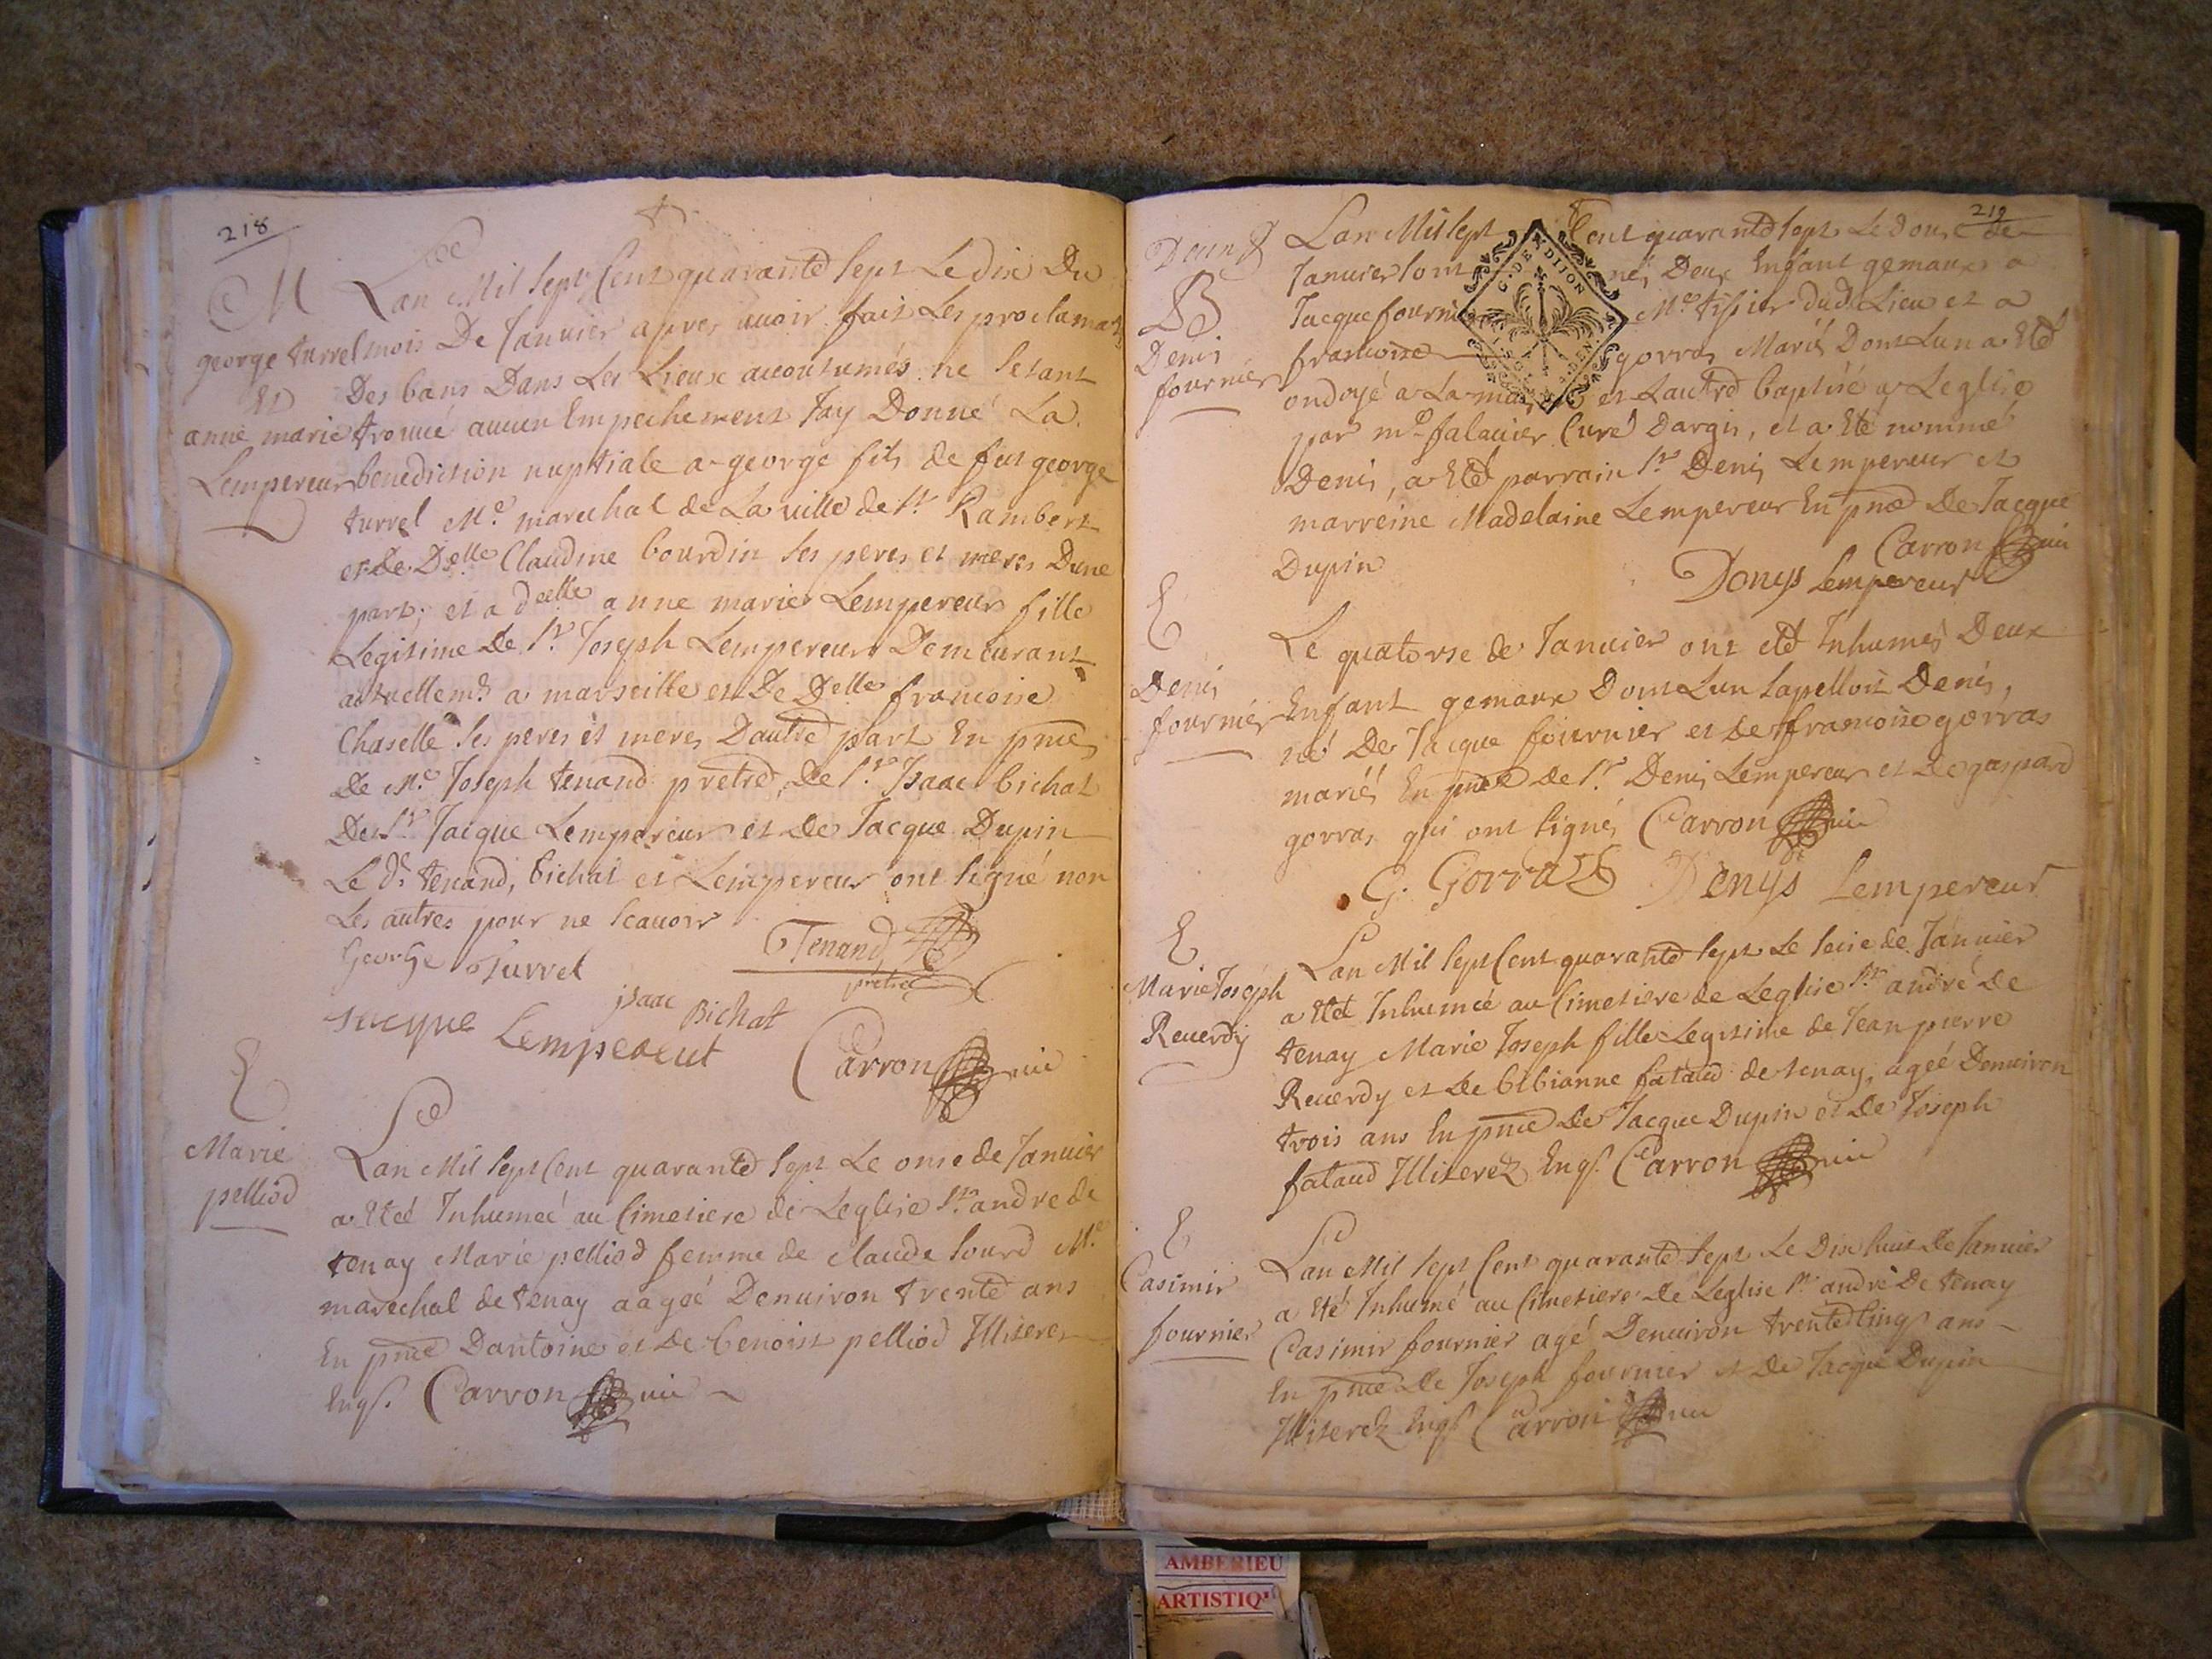 218
M
george turrel
et
anne marie
Lempereur
Lan Mil Sept Cent quarante Sept Le dix Du
mois De Januier apres auoir fait Les proclama
Des bans Dans Les Lieux accoutumés ne Setant
trouué aucun Empechement Jay Donné La
benediction nuptiale a george fils de feu george
turrel Me. marechal de La ville de St Rambert
et de Delle Claudine bourdin Ses peres et meres Dune
part; et a delle anne marie Lempereur fille
Legitime De Sr. Joseph Lempereur Demeurant
actuellemt a marseille et De Delle francoise
Chaselle Ses peres et meres Dautre part En pnce
de Mre Joseph tenand pretre, De Sr. Isaac bichat
De Sr. Jacque Lempereur et de Jacque Dupin
Le dt tenand, bichat et Lempereur ont signé non
Les autres pour ne scauoir
GeorGe Turrel
Tenand
pretre
isaac Bichat
Jacque Lempereur
Carron
E
Marie
pelliod
Lan Mil Sept Cent quarante Sept Le onse de Januier
a Eté Inhumeé au Cimetiere de Leglise St. andre de
tenay Marie pelliod femme de claude Sourd Me.
marechal de tenay aageé Denuiron trente ans
En pnce Dantoine et de benoist pelliod Illiteres
Enqs. Carron
219
B
Denis
fournier
Lan Mil Sept Cent quarante Sept Le douse de
Januier Sont nés Deux Enfant gemaux a
Jacque fournier Me tissier dud Lieu et a
francoise gorras Mariés Dont Lun a Eté
G. DE DIJON
ondoyé a La maison et Lautre baptisé a Leglise
par mr falauier Curé Dargis, et a Eté nommé
Denis, a Eté parrain Sr. Denis Lempereur et
marreine Madelaine Lempereur En pnce De Jacque
Dupin
Carron
Denys Lempereur
E
Denis
fournier
Le quatorse de Januier ont eté Inhumés Deux
Enfant gemaux Dont Lun Sapelloit Denis,
né De Jacque fournier et de francoise gorras
mariés En pnce de Sr. Denis Lempereur et De gaspard
gorras qui ont signés Carron
G. Gorras Denys Lempereur
E
Marie Joseph
Reuerdy
Lan Mil Sept Cent quarante Sept Le Seise de Januier
a Eté Inhumeé au Cimetiere de Leglise St. andré de
tenay Marie Joseph fille Legitime de Jean pierre
Reuerdy et de bibianne fataud de tenay, ageé Denuiron
trois ans En pnce De Jacque Dupin et De Joseph
fataud Illiterez Enqs. Carron
E
Casimir
fournier
Lan Mil Sept Cent quarante Sept Le Dix huit De Januier
a Eté Inhumé au Cimetiere De Leglise St. andré De tenay
Casimir fournier agé Denuiron trente Cinq ans
En pnce De Joseph fournier et De Jacque Dupin
Illiterez Enqs Carron
AMBERIEU
ARTISTIQ